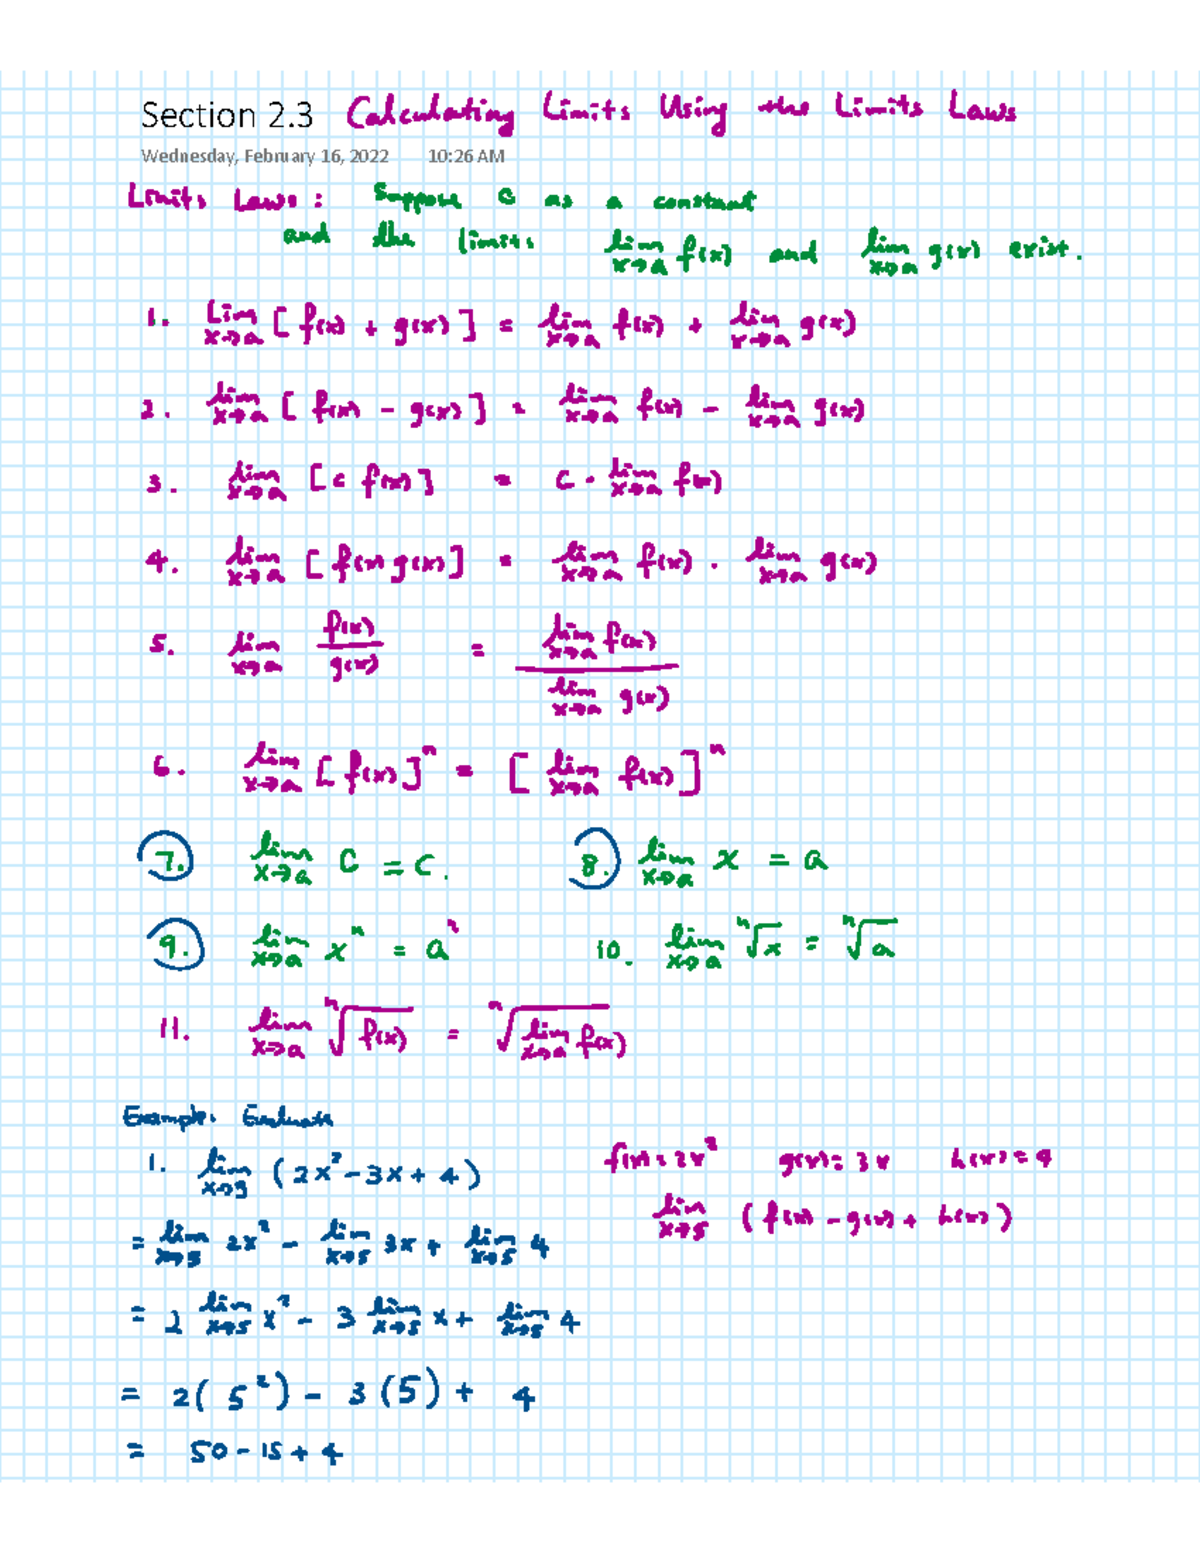 Section 2.3 Calculating Limits Using the Limits Laws
Wednesday, February 16, 2022 10:26 AM
Limits Laws : Suppose C as a constant
and the limits lim x→a f(x) and lim x→a g(x) exist.
1. Lim x→a [ f(x) + g(x) ] = lim x→a f(x) + lim x→a g(x)
2. lim x→a [ f(x) - g(x) ] = lim x→a f(x) - lim x→a g(x)
3. lim x→a [ c f(x) ] = c · lim x→a f(x)
4. lim x→a [ f(x) g(x) ] = lim x→a f(x) · lim x→a g(x)
5. lim x→a f(x) / g(x) = lim x→a f(x) / lim x→a g(x)
6. lim x→a [ f(x) ]ⁿ = [ lim x→a f(x) ]ⁿ
7. lim x→a C = C. 8. lim x→a x = a
9. lim x→a xⁿ = aⁿ 10. lim x→a ⁿ√x = ⁿ√a
11. lim x→a ⁿ√f(x) = ⁿ√lim x→a f(x)
Example: Evaluate
1. lim x→5 (2x² - 3x + 4) f(x) = 2x² g(x) = 3x h(x) = 4
lim x→5 ( f(x) - g(x) + h(x) )
= lim x→5 2x² - lim x→5 3x + lim x→5 4
= 2 lim x→5 x² - 3 lim x→5 x + lim x→5 4
= 2( 5² ) - 3 (5) + 4
= 50 - 15 + 4